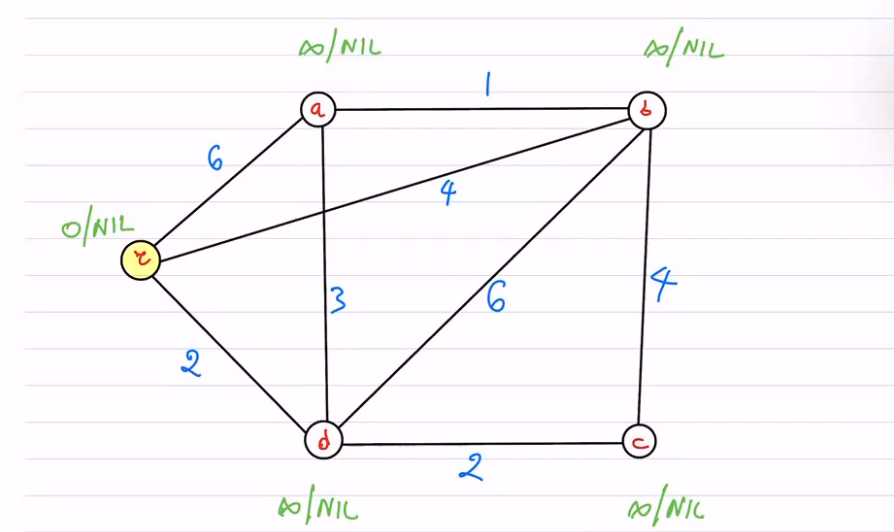 ∞/NIL
∞/NIL
1
a
b
6
4
0/NIL
r
3
6
4
2
d
c
2
∞/NIL
∞/NIL